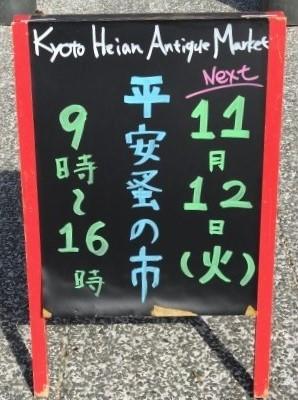 Kyoto Heian Antique Market
Next
11月12日(火)
平安蚤の市
9時〜16時